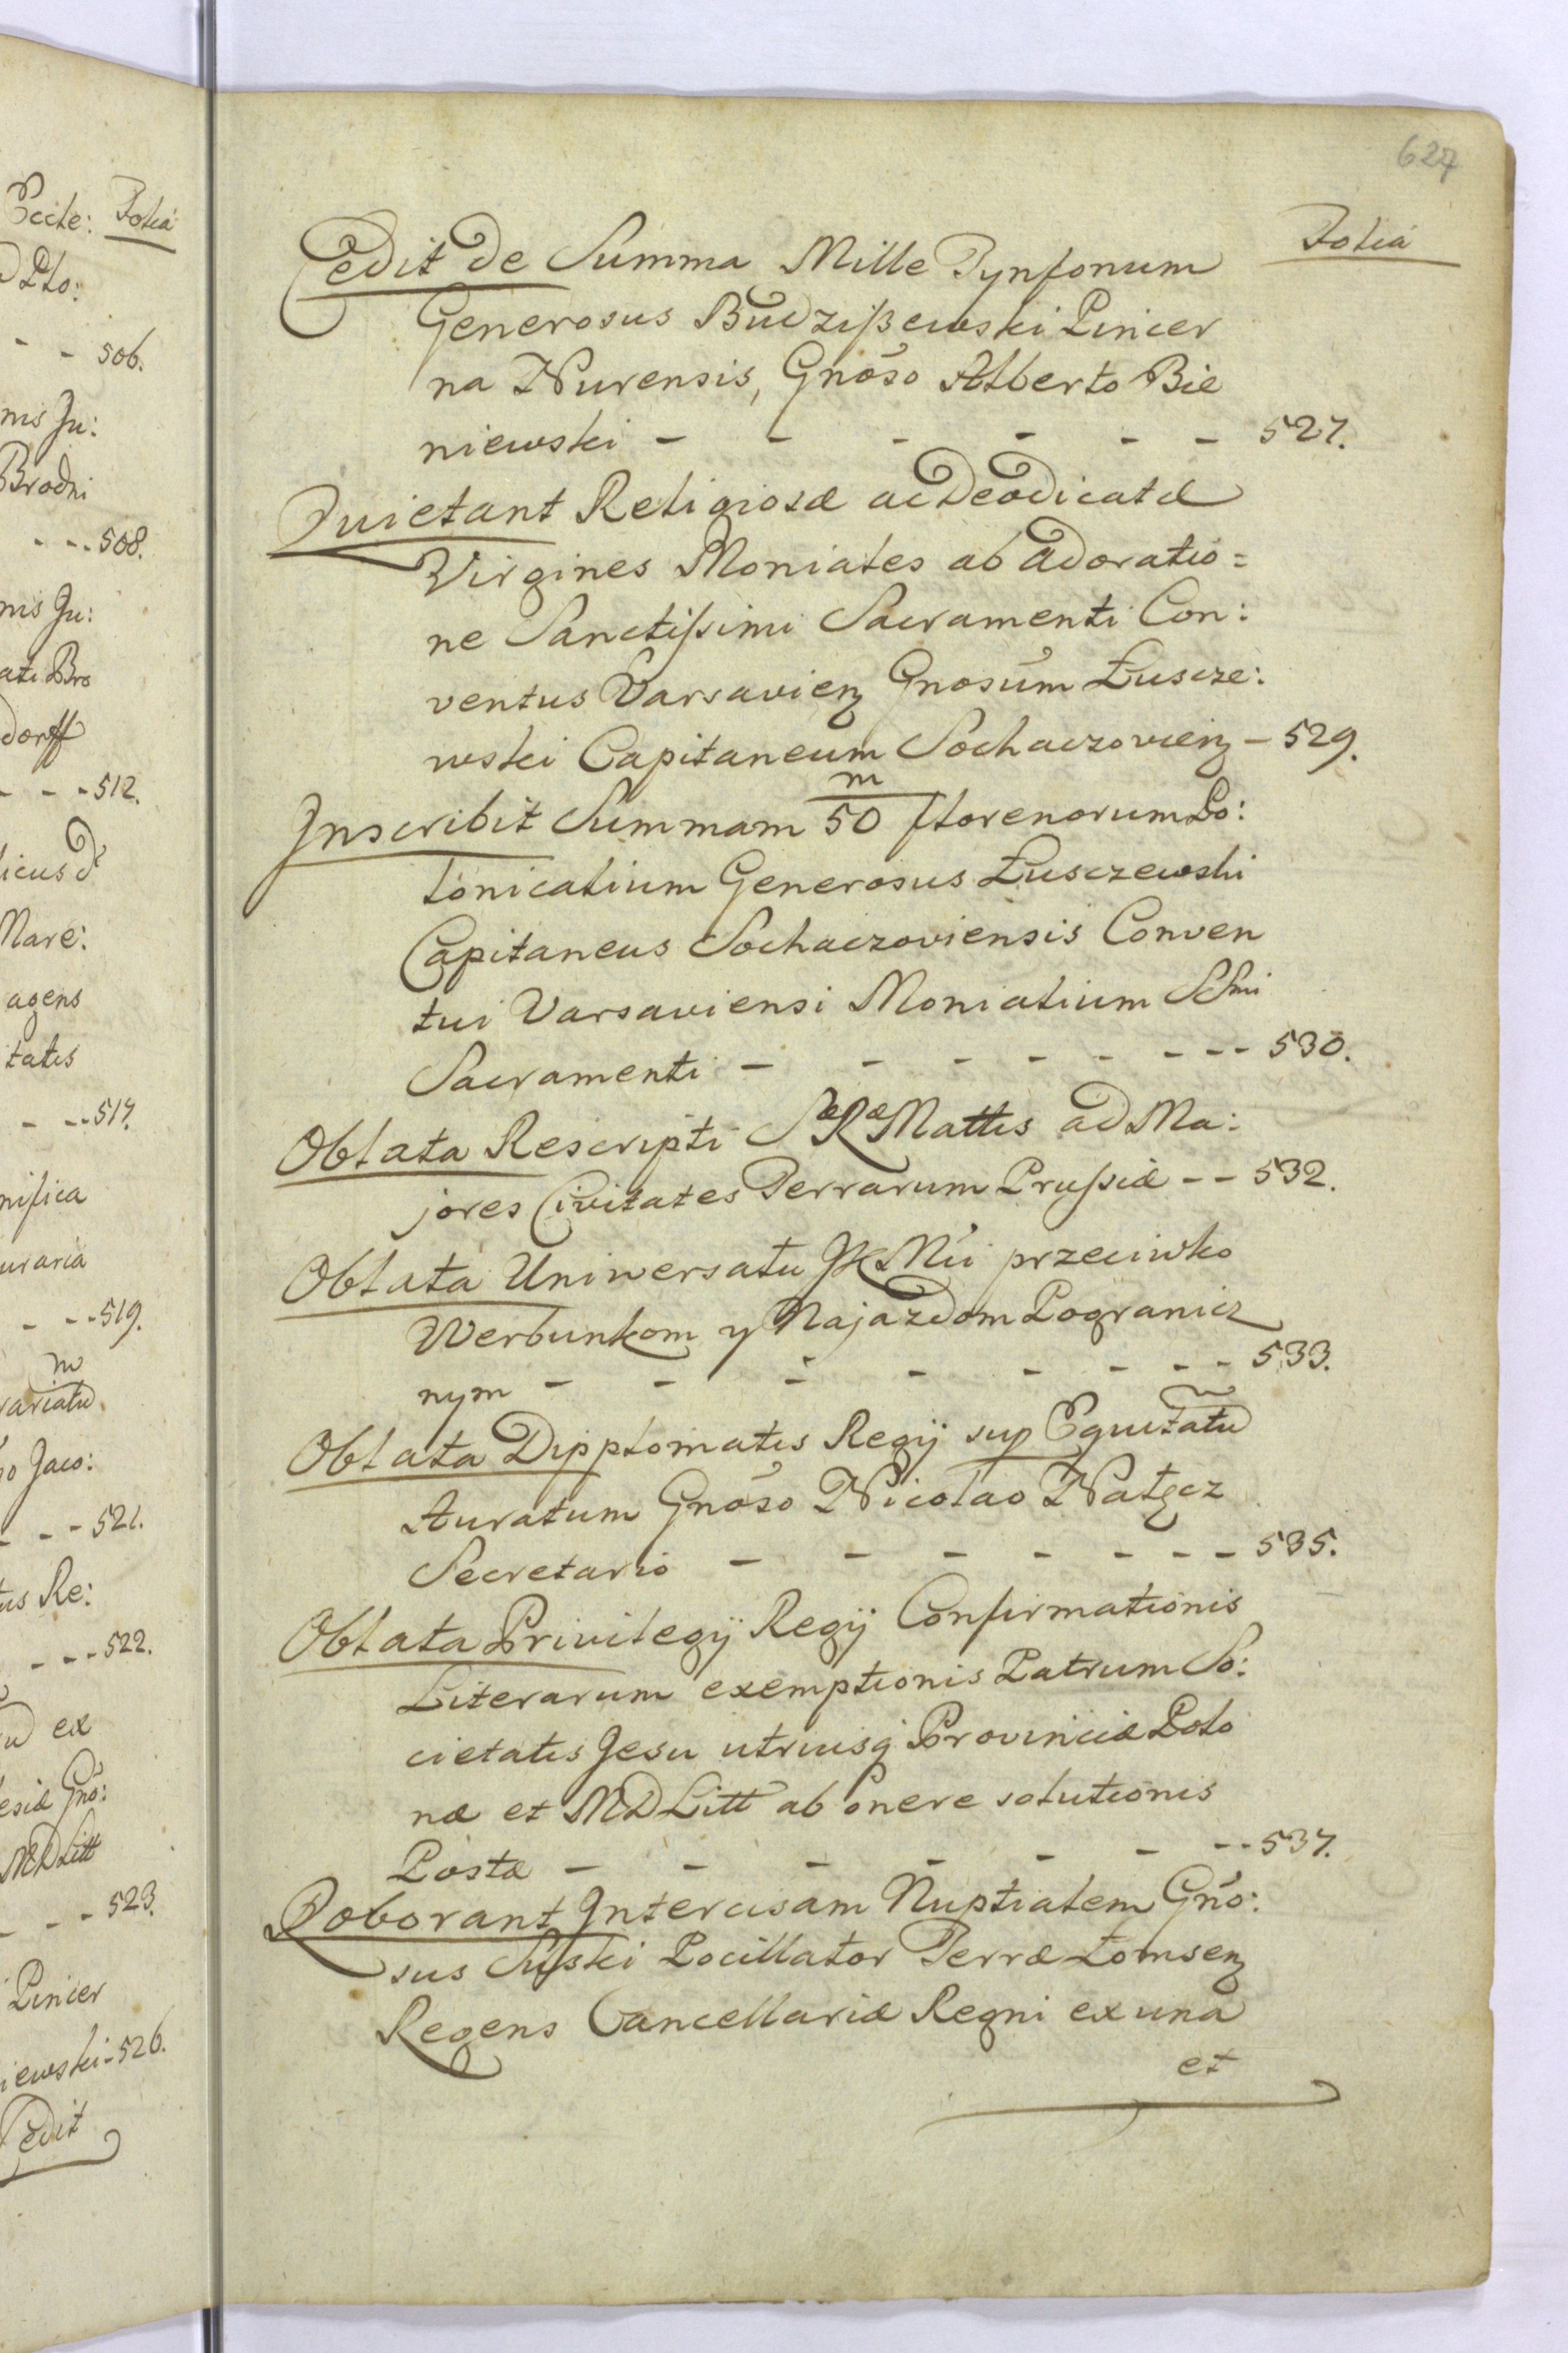 Eccle: Folia
Plo:
- - 506.
nis Ju:
Brodni
- - - 508.
nis Ju:
ati Bro
dorff
- - - 512.
licus
Mare:
agens
tatis
- - - 517.
nifica
uraria
- - - 519.
m
variatu
Jaco:
- - - 521.
tus Re:
- - - 522.
ex
esiæ Gno:
MDLitt
- - - 523.
Pincer
iewski - 526.
Cedit
627
Folia
Cedit de Summa Mille Tynfonum
Generosus Budzißewski Pincer
na Nurensis, Gnoso Alberto Bie
niewski - - - - - - 527.
Quietant Religiosæ ac Deodicatæ
Virgines Moniales ab adoratio=
ne Sanctißimi Sacramenti Con:
ventus Varsavienz Gnosum Łuscze:
wski Capitaneum Sochaczovienz - 529.
m
Inscribit Summam 50 florenorum Po:
lonicalium Generosus Łusczewski
Capitaneus Sochaczoviensis Conven
tui Varsaviensi Monialium SSmi
Sacramenti - - - - - - - - 530.
Oblata Rescripti SæRæMattis ad Ma:
jores Civitates Terrarum Prußiæ - - 532.
Oblata Uniwersału JKMci przeciwko
Werbunkom y Najazdom Pogranicz
nym - - - - - - - - 533.
Oblata Dipplomatis Regij sup Equitatu
Auratum Gnoso Nicolao Nałęcz
Secretario - - - - - - - 535.
Oblata Privilegij Regij Confirmationis
Literarum exemptionis Patrum So:
cietatis Jesu utriusq Provinciæ Polo
næ et MDLitt ab onere solutionis
Postæ - - - - - - - - 537.
Roborant Intercisam Nuptialem Gno:
sus Suski Pocillator Terræ Łomsenz
Regens Cancellariæ Regni ex una
et